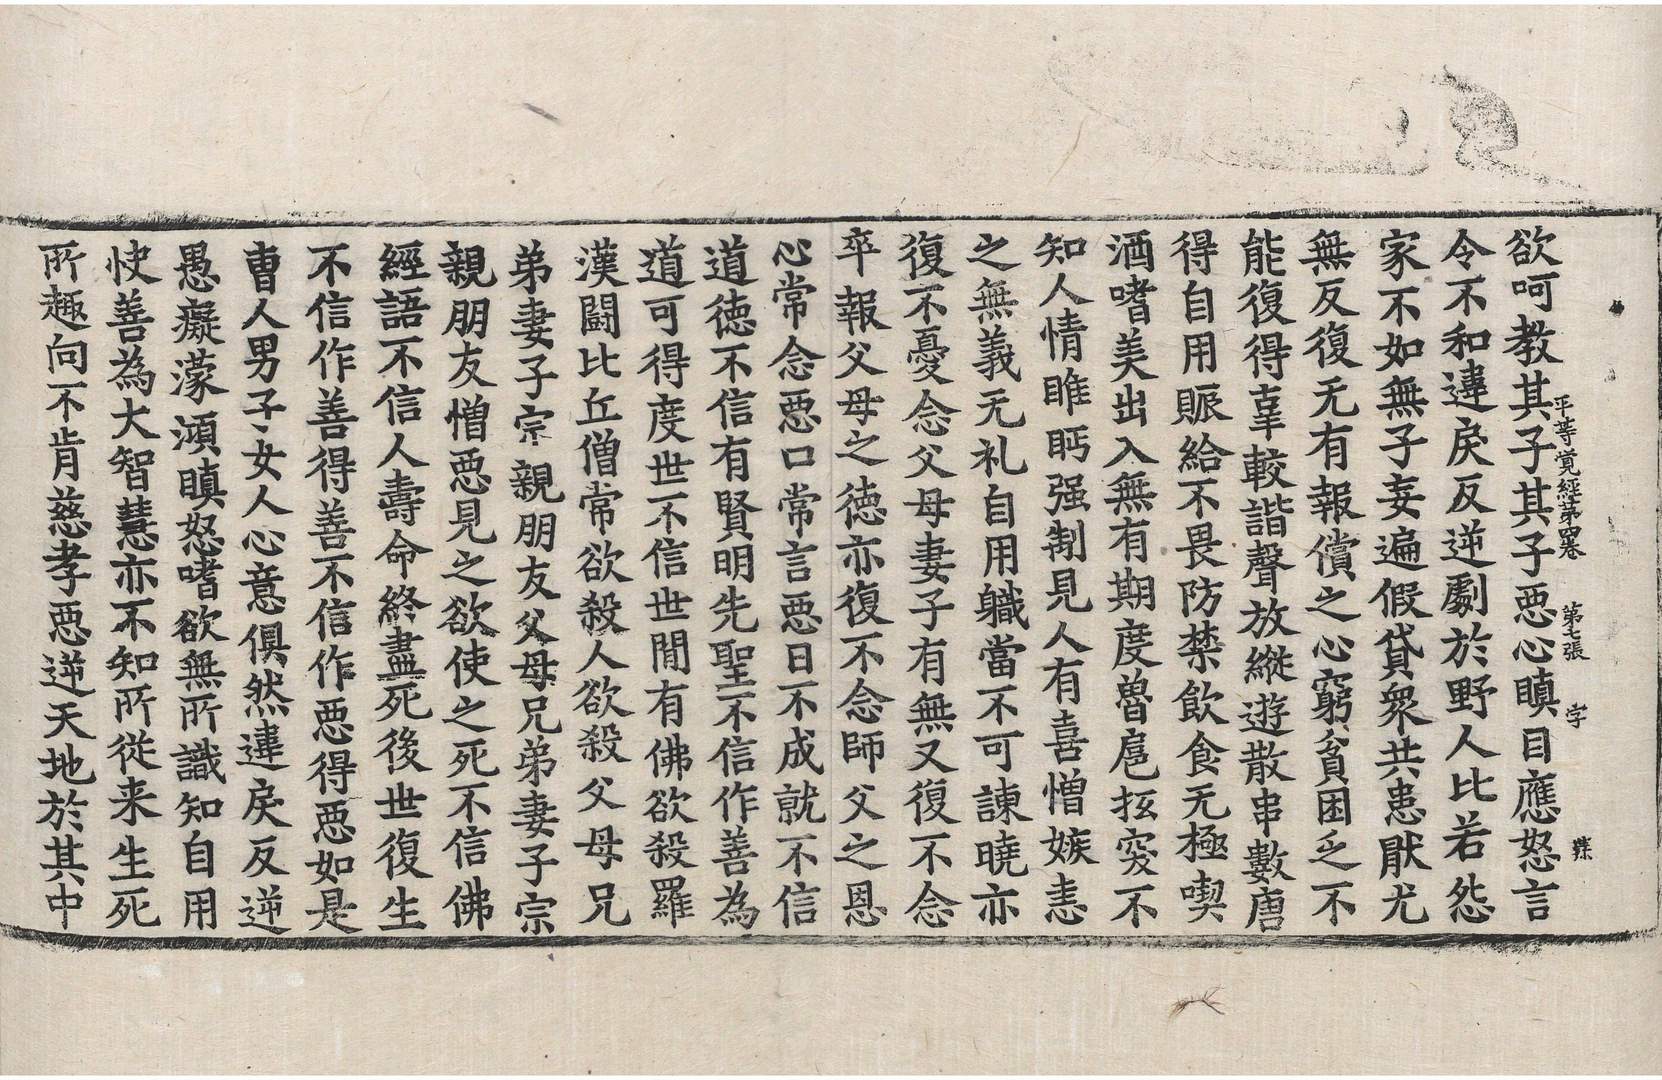 平等覚經第四卷 第七張 字
欲呵教其子其子惡心瞋目應怒言
令不和違戾反逆劇於野人比若怨
家不如無子妄遍假貸衆共患厭尤
無反復无有報償之心窮貧困乏不
能復得辜較諧聲放縱遊散串數唐
得自用賑給不畏防禁飲食无極喫
酒嗜美出入無有期度魯扈抂突不
知人情睢盱强制見人有喜憎嫉恚
之無義无礼自用職當不可諫曉亦
復不憂念父母妻子有無又復不念
卒報父母之德亦復不念師父之恩
心常念惡口常言惡日不成就不信
道德不信有賢明先聖不信作善為
道可得度世不信世間有佛欲殺羅
漢鬪比丘僧常欲殺人欲殺父母兄
弟妻子宗親朋友父母兄弟妻子宗
親朋友憎惡見之欲使之死不信佛
經語不信人壽命終盡死後世復生
不信作善得善不信作惡得惡如是
曹人男子女人心意俱然違戾反逆
愚癡濛澒瞋怒嗜欲無所識知自用
快善為大智慧亦不知所從来生死
所趣向不肯慈孝惡逆天地於其中